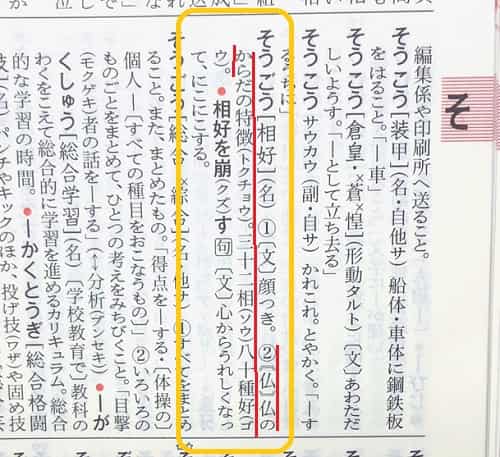 そ
編集係や印刷所へ送ること。
そうこう[装甲](名・自他サ) 船体・車体に鋼鉄板
をはること。「―車」
そうこう[倉皇・×蒼×惶](形動タルト)〔文〕あわただ
しいようす。「―として立ち去る」
そうこう サウカウ(副・自サ) かれこれ。とやかく。「―す
るうちに」
そうごう[相好](名)①〔文〕顔つき。②〔仏〕仏の
からだの特徴(トクチョウ)。三十二相(ソウ)八十種好(ゴ
ウ)。●相好を崩(クズ)す 句〔文〕心からうれしくなっ
て、にこにこする。
そうごう[総合・×綜合](名・他サ)①すべてをまとめ
ること。また、まとめたもの。「得点を―する・〔体操の〕
個人―〔すべての種目をおこなうもの〕」②いろいろの
ものごとをまとめて、ひとつの考えをみちびくこと。「目撃
(モクゲキ)者の話を―する」(↔分析(ブンセキ))●―が
くしゅう[総合学習](名)〔学校教育で〕教科の
わくをこえて総合的に学習を進めるカリキュラム。総合
的な学習の時間。●―かくとうぎ[総合格闘
技](名) パンチやキックのほか、投げ技(ワザ)や固め技